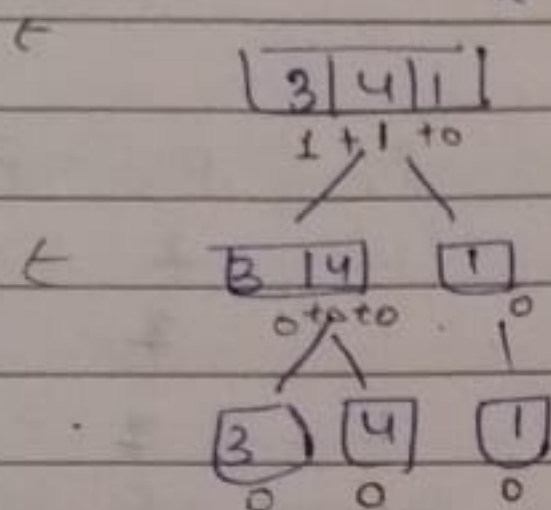 3 | 4 | 1
1 + 1 + 0
3 | 4 1
0 + 0 + 0 0
3 4 1
0 0 0